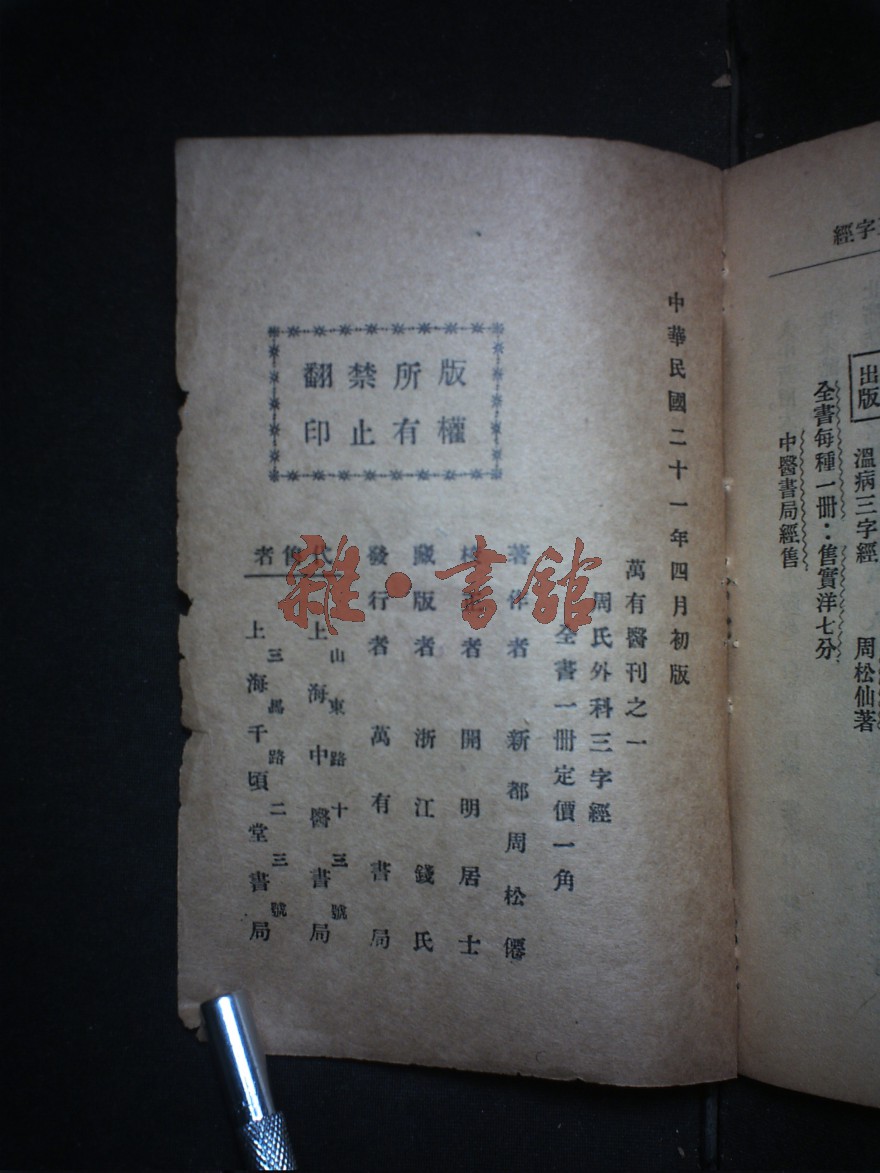 經字
出版
溫病三字經 周松仙著
全書每種一冊：售實洋七分
中醫書局經售
中華民國二十一年四月初版
萬有醫刊之一
周氏外科三字經
全書一冊定價一角
著作者 新都周松僊
者 開明居士
藏版者 浙江錢氏
發行者 萬有書局
代售者
山東路十三號
上海中醫書局
三馬路二三號
上海千頃堂書局
版權所有
翻印禁止
雜·書館